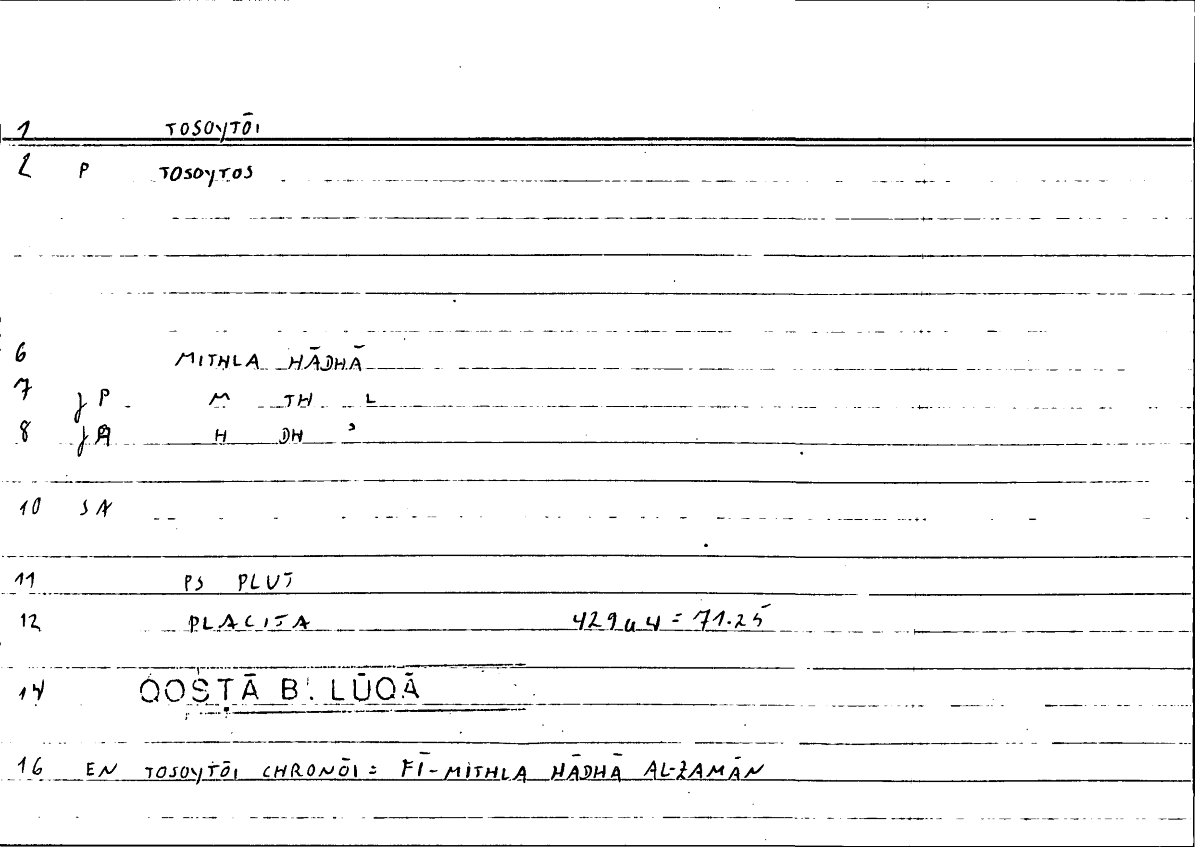 1 TOSOYTŌI
2 P TOSOYTOS
6 MITHLA HĀDHĀ
7 P M TH L
8 H DH ʾ
10 SA
11 PS PLUT
12 PLACITA 429a4 = 71.25
14 QOSṬĀ B. LŪQĀ
16 EN TOSOYTŌI CHRONŌI = FĪ-MITHLA HĀDHĀ AL-ZAMĀN